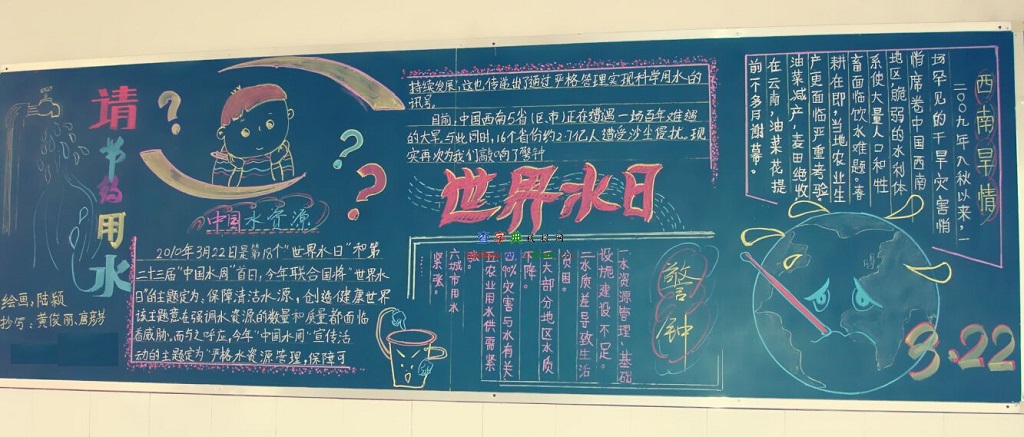 请节约用水
绘画,陆颖
抄写:黄俊丽
中国水资源
2010年3月22日是第18个“世界水日”和第
二十三届“中国水周”首日,今年联合国将“世界水
日”的主题定为、保障清洁水源,创造健康世界
该主题意在强调水资源的数量和质量都面临
着威胁。而与之呼应,今年“中国水周”宣传活
动的主题定为“严格水资源管理,保障可
持续发展,这也,传递出了通过严格管理实现科学用水的
讯号。
目前,中国西南5省(区.市)正在遭遇一场百年难遇
的大旱,与此同时,16个省份约2.7亿人遭受沙尘侵扰。现
实再次为我们敲响了警钟
世界水日
警钟
一.水资源管理、基础
设施建设不足。
二.水质差导致生活
贫困。
三.大部分地区水质
下降。
四.90%灾害与水有关
五.农业用水供需紧
六城市用水
紧张。
西南旱情
二〇〇九年入秋以来,一
场罕见的干旱灾害悄
悄席卷中国西南
地区,脆弱的水利体
系使大量人口和牲
畜面临饮水难题。春
耕在即,当地农业生
产更面临严重考验
油菜减产,麦田绝收
在云南,油菜花提
前一个多月谢幕。
3.22